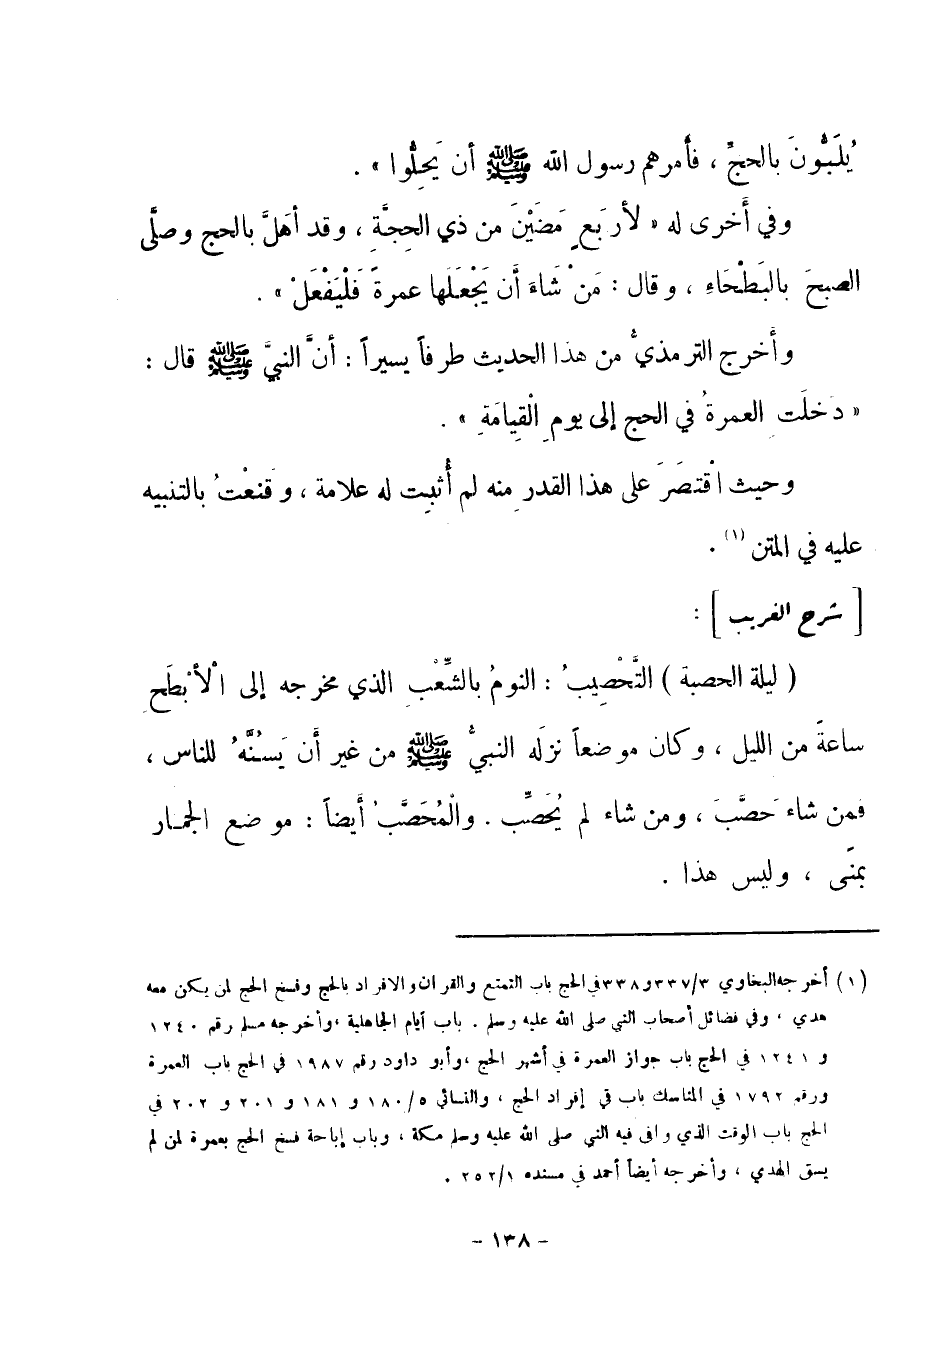 يُلَبُّونَ بالحجِّ ، فأمرهم رسول الله ﷺ أن يَحِلُّوا » .
وفي أُخرى له « لأربَعٍ مَضَيْنَ من ذي الحِجَّةِ ، وقد أهَلَّ بالحج وصلَّى
الصبحَ بالبَطْحَاءِ ، وقال : مَنْ شَاءَ أن يَجْعَلَها عمرةً فَلْيَفْعَلْ » .
وأخرج الترمذيُّ من هذا الحديث طرفاً يسيراً : أنَّ النبيَّ ﷺ قال :
« دَخلَت العمرةُ في الحج إلى يومِ الْقِيامَةِ » .
وحيث اقْتصَرَ على هذا القدرِ منه لم أُثبِت له علامة ، وقَنعْتُ بالتنبيه
عليه في المتن (١) .
[ شرح الغريب ] :
( ليلة الحصبة ) التَّحْصِيبُ : النومُ بالشِّعْبِ الذي مخرجه إلى الْأبْطَحِ
ساعةً من الليل ، وكان موضعاً نزلَه النبيُّ ﷺ من غير أن يَسُنَّهُ للناس ،
فمن شاء حَصَّبَ ، ومن شاء لم يُحَصِّب . والْمُحَصَّبُ أيضاً : موضع الجمار
بمنًى ، وليس هذا .
(١) أخرجه البخاري ٣/ ٣٣٧ و ٣٣٨ في الحج باب التمتع والقران والافراد بالحج وفسخ الحج لمن يكن معه
هدي ، وفي فضائل أصحاب النبي صلى الله عليه وسلم . باب أيام الجاهلية ، وأخرجه مسلم رقم ١٢٤٠
و ١٢٤١ في الحج باب جواز العمرة في أشهر الحج ، وأبو داود رقم ١٩٨٧ في الحج باب العمرة
ورقم ١٧٩٢ في المناسك باب في إفراد الحج ، والنسائي ٥/ ١٨٠ و ١٨١ و ٢٠١ و ٢٠٢ في
الحج باب الوقت الذي وافى فيه النبي صلى الله عليه وسلم مكة ، وباب إباحة فسخ الحج بعمرة لمن لم
يسق الهدي ، وأخرجه أيضاً أحمد في مسنده ١/ ٢٥٢ .
- ١٣٨ -